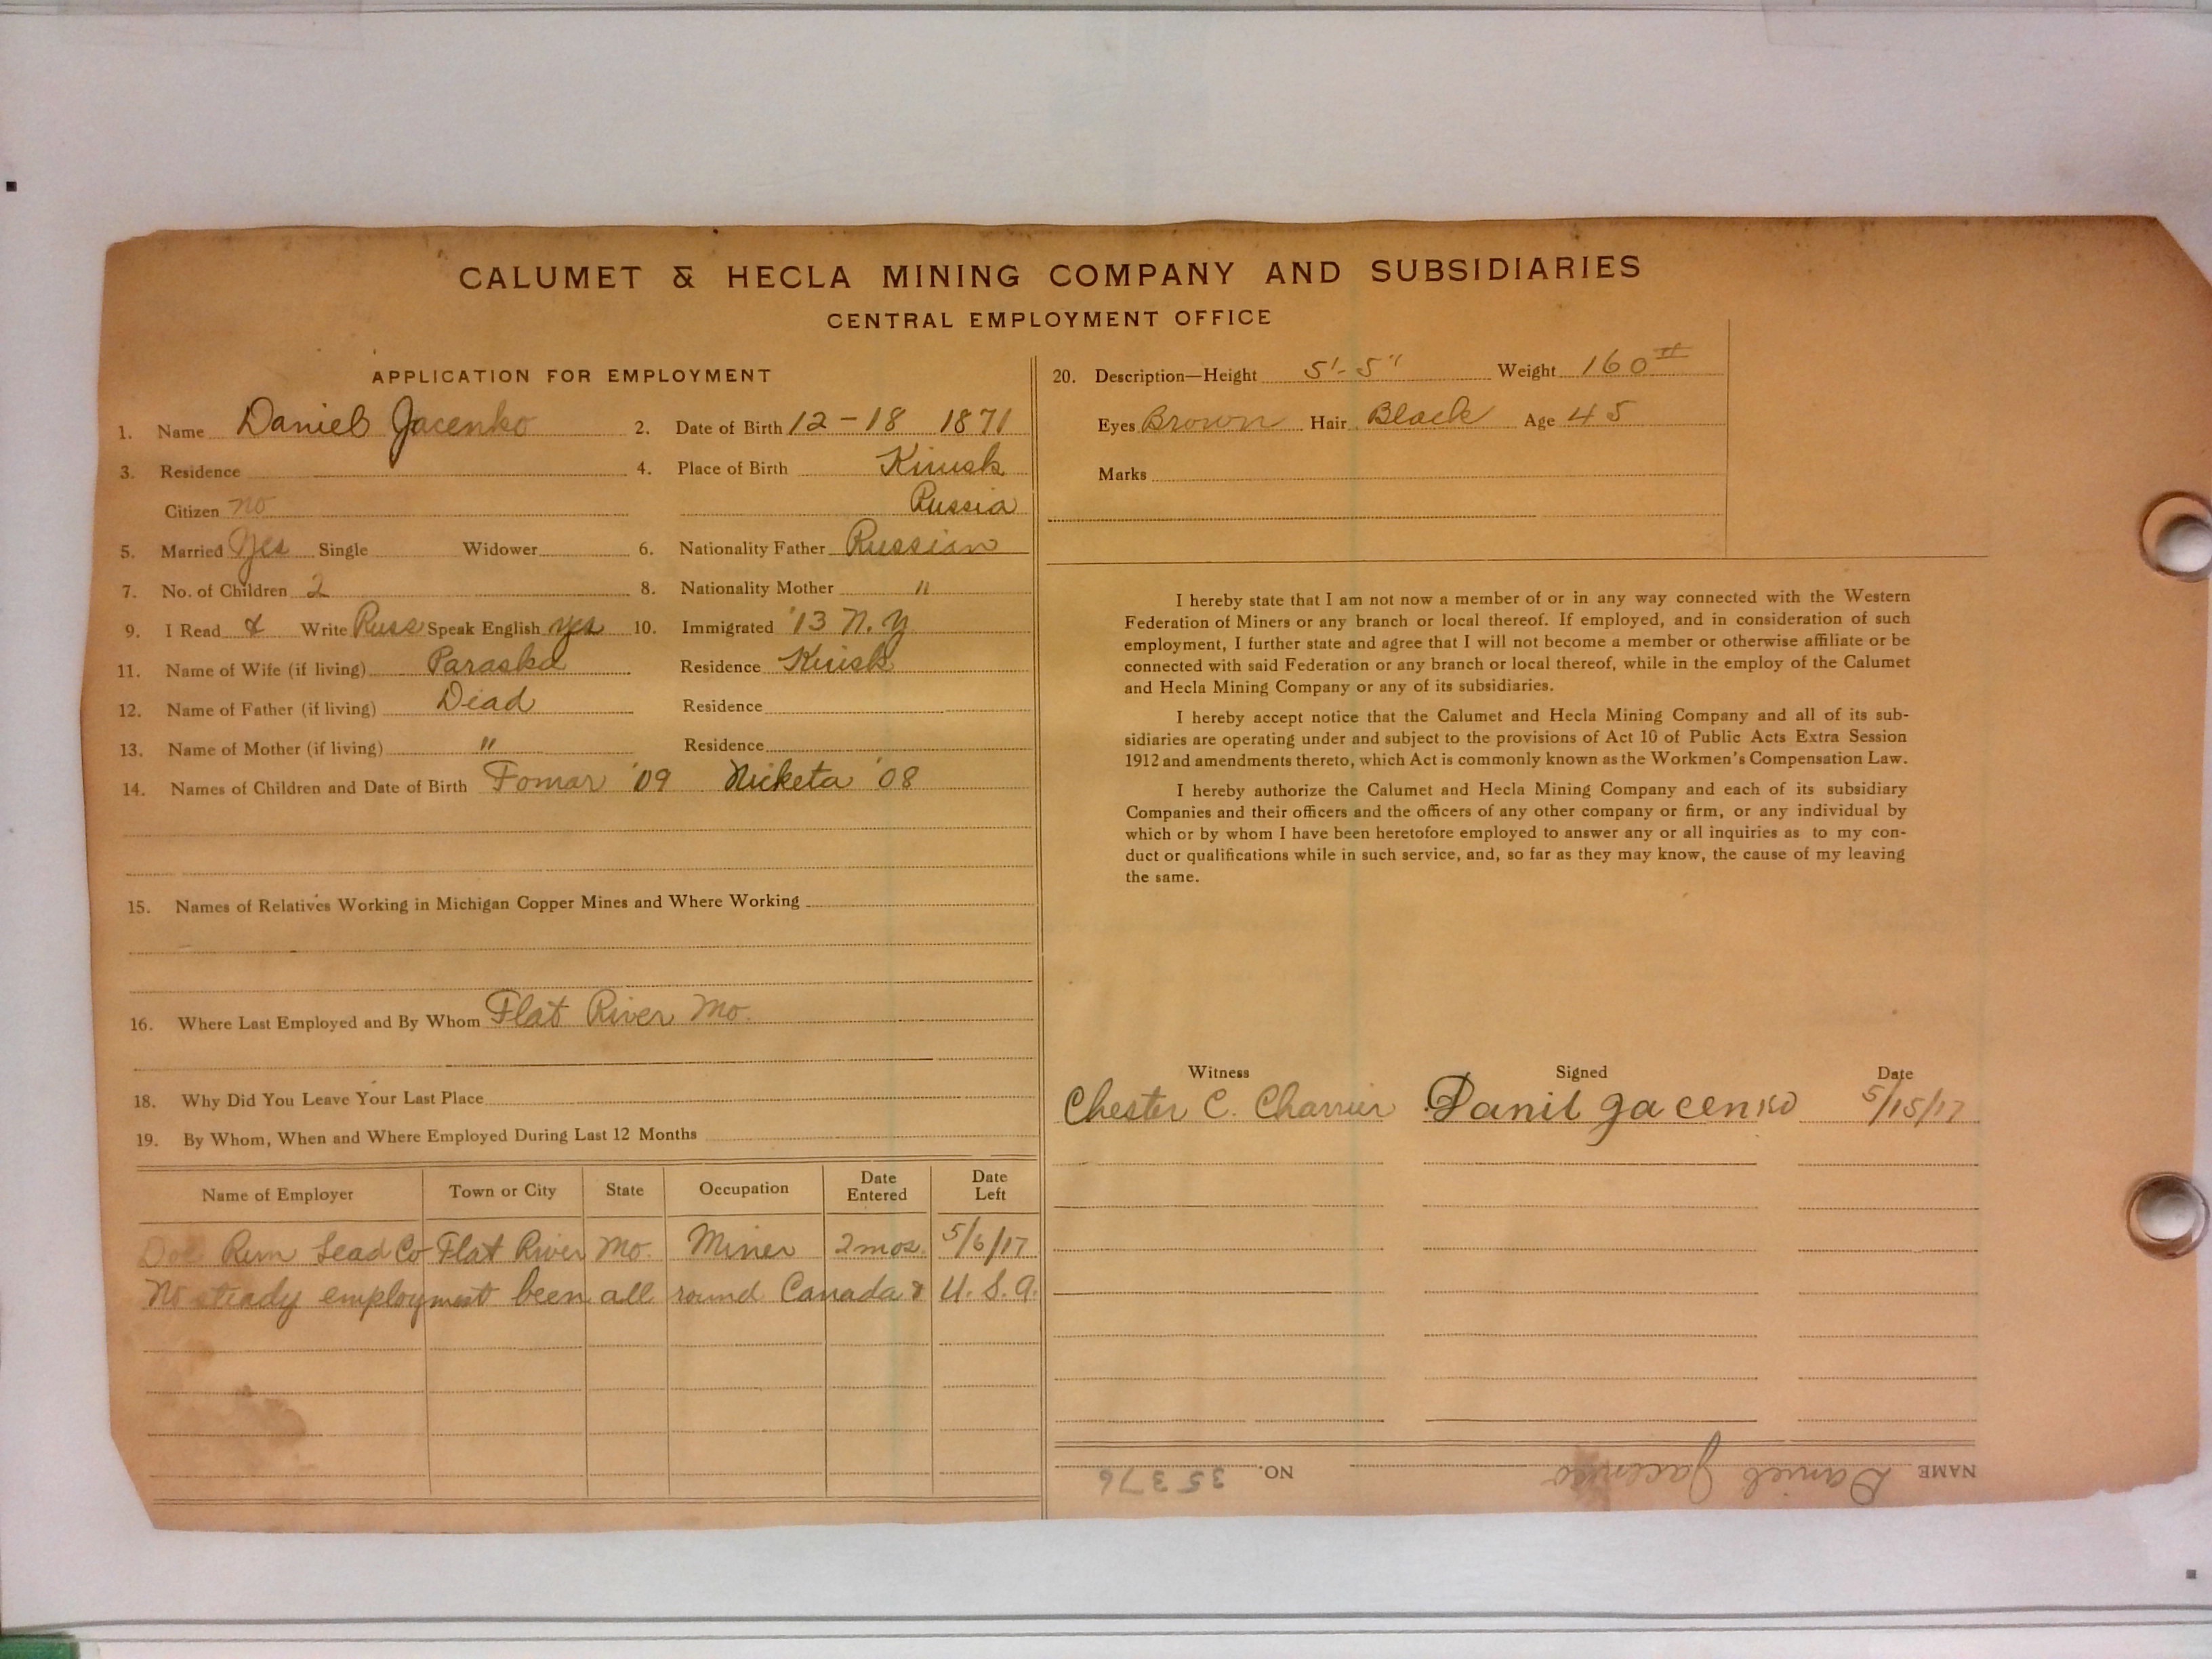 CALUMET & HECLA MINING COMPANY AND SUBSIDIARIES
CENTRAL EMPLOYMENT OFFICE
APPLICATION FOR EMPLOYMENT
1. Name Daniel Jacenko 2. Date of Birth 12-18 1871
3. Residence 4. Place of Birth
Citizen no Russia
5. Married Yes Single Widower 6. Nationality Father Russian
7. No. of Children 2 8. Nationality Mother "
9. I Read & Write Russ Speak English yes 10. Immigrated '13 N.Y
11. Name of Wife (if living) Paraska Residence
12. Name of Father (if living) Dead Residence
13. Name of Mother (if living) " Residence
14. Names of Children and Date of Birth Fomar '09 Nicketa '08
15. Names of Relatives Working in Michigan Copper Mines and Where Working
16. Where Last Employed and By Whom Flat River Mo.
18. Why Did You Leave Your Last Place
19. By Whom, When and Where Employed During Last 12 Months
Name of Employer Town or City State Occupation Date Entered Date Left
Run Lead Co Flat River Mo. Miner 2 mos. 5/6/17
No steady employment been all round Canada & U.S.A.
20. Description—Height 5'-5" Weight 160#
Eyes Brown Hair Black Age 45
Marks
I hereby state that I am not now a member of or in any way connected with the Western
Federation of Miners or any branch or local thereof. If employed, and in consideration of such
employment, I further state and agree that I will not become a member or otherwise affiliate or be
connected with said Federation or any branch or local thereof, while in the employ of the Calumet
and Hecla Mining Company or any of its subsidiaries.
I hereby accept notice that the Calumet and Hecla Mining Company and all of its sub-
sidiaries are operating under and subject to the provisions of Act 10 of Public Acts Extra Session
1912 and amendments thereto, which Act is commonly known as the Workmen's Compensation Law.
I hereby authorize the Calumet and Hecla Mining Company and each of its subsidiary
Companies and their officers and the officers of any other company or firm, or any individual by
which or by whom I have been heretofore employed to answer any or all inquiries as to my con-
duct or qualifications while in such service, and, so far as they may know, the cause of my leaving
the same.
Witness Signed Date
Chester C. Charrier Danil Jacenko 5/15/17
NAME Daniel Jacenko NO. 35376